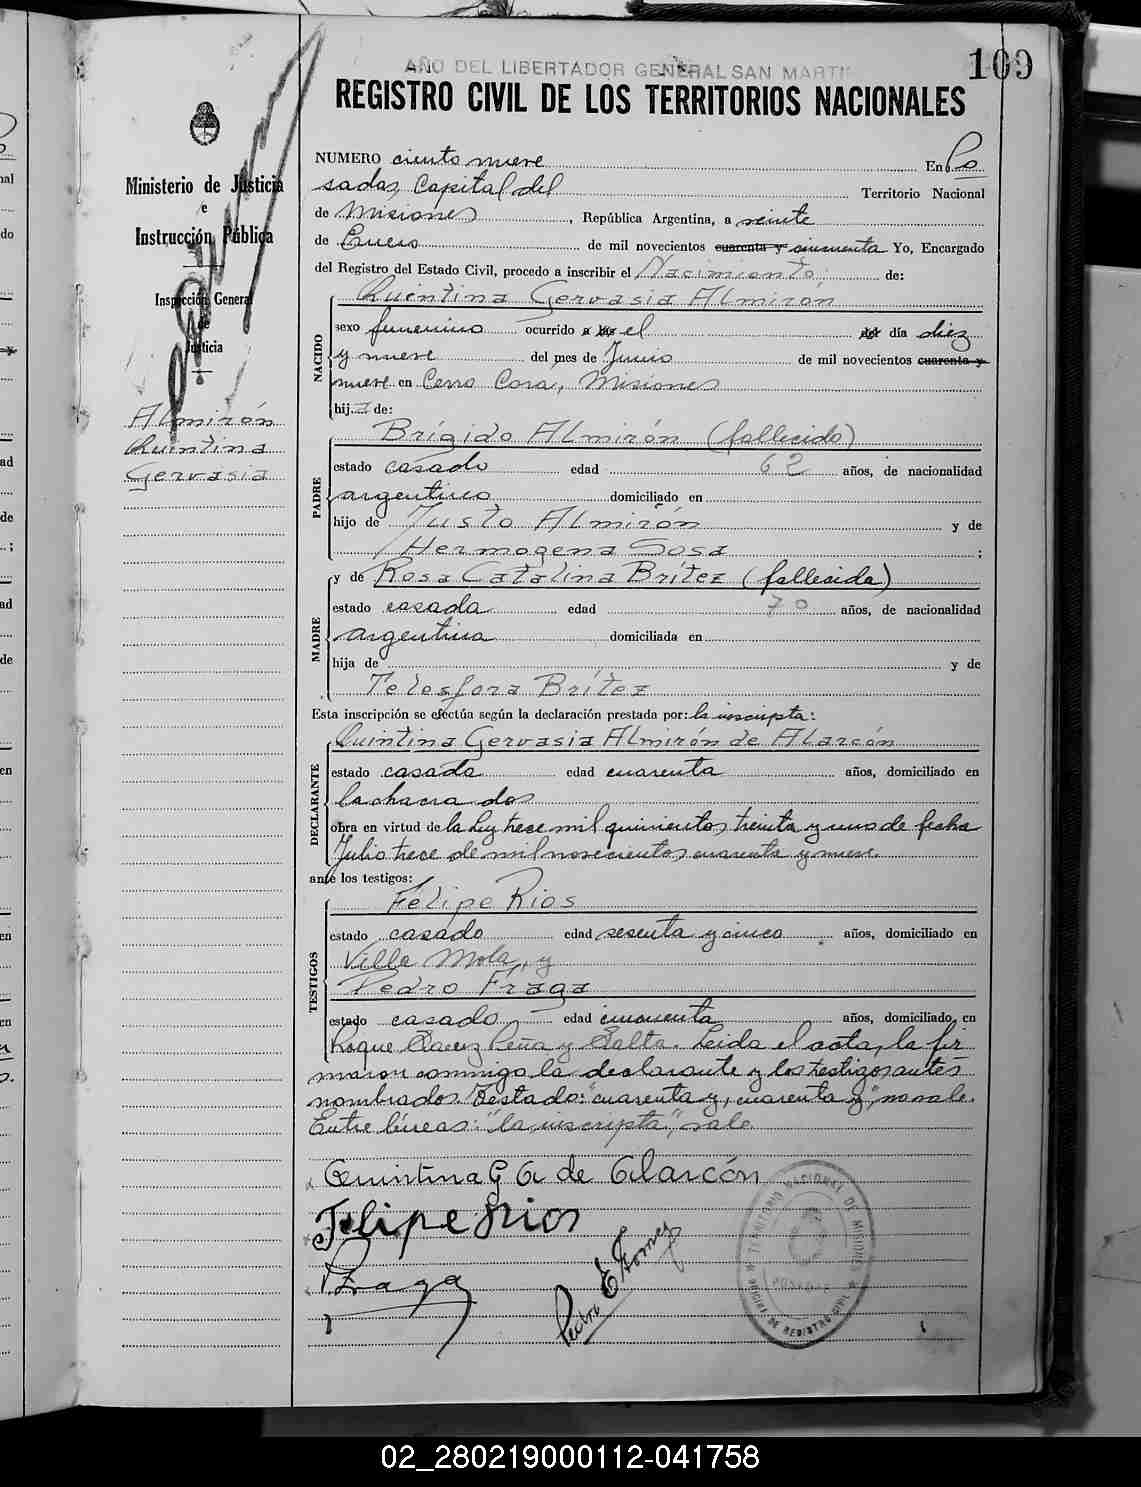 109
AÑO DEL LIBERTADOR GENERAL SAN MARTI
REGISTRO CIVIL DE LOS TERRITORIOS NACIONALES
Ministerio de Justicia
e
Instrucción Pública
Inspección General
de
Justicia
Almirón
Quintina
Gervasia
NUMERO ciento nueve En Po
sadas, Capital del Territorio Nacional
de Misiones, República Argentina, a veinte
de Enero de mil novecientos cuarenta y cincuenta Yo, Encargado
del Registro del Estado Civil, procedo a inscribir el Nacimiento de:
Quintina Gervasia Almirón
NACIDO
sexo femenino ocurrido a las el del día diez
y nueve del mes de Junio de mil novecientos cuarenta y
nueve en Cerro Corá, Misiones
hija de:
Brígido Almirón (fallecido)
PADRE
estado casado edad 62 años, de nacionalidad
argentino domiciliado en
hijo de Justo Almirón y de
Hermogena Sosa ;
y de Rosa Catalina Brítez (fallecida)
MADRE
estado casada edad 70 años, de nacionalidad
argentina domiciliada en
hija de y de
Telesfora Brítez
Esta inscripción se efectúa según la declaración prestada por: la inscripta:
Quintina Gervasia Almirón de Alarcón
DECLARANTE
estado casada edad cuarenta años, domiciliado en
la chacra dos
obra en virtud de la Ley trece mil quinientos treinta y uno de fecha
Julio trece de mil novecientos cuarenta y nueve.
ante los testigos:
Felipe Rios
TESTIGOS
estado casado edad sesenta y cinco años, domiciliado en
Villa Mola, y
Pedro Fraga
estado casado edad cincuenta años, domiciliado en
Roque Saenz Peña y Salta. Leida el acta, la fir
maron conmigo la declarante y los testigos antes
nombrados. Testado: "cuarenta y, cuarenta y", no vale.
Entre líneas: "la inscripta", vale
Quintina G A de Alarcón
Felipe Rios
PFraga
Pedro E Gomez
TERRITORIO NACIONAL DE MISIONES
POSADAS
OFICINA DE REGISTRO CIVIL
02_280219000112-041758